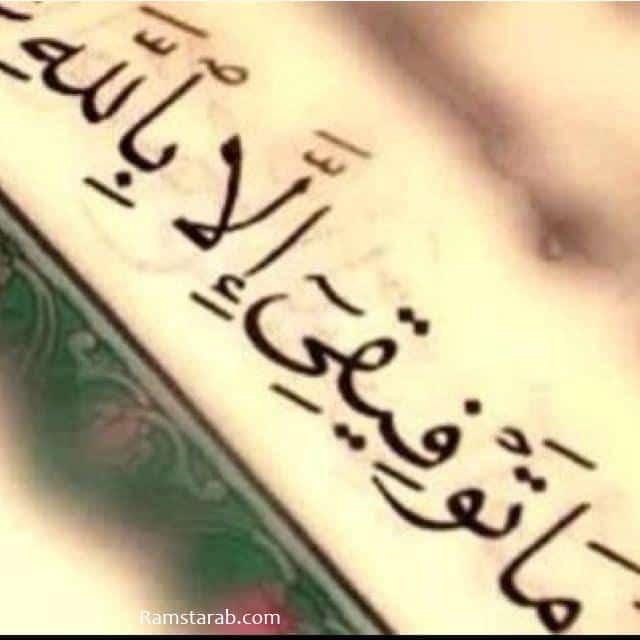 مَا تَوْفِيقِيٓ إِلَّا بِٱللَّهِ
Ramstarab.com